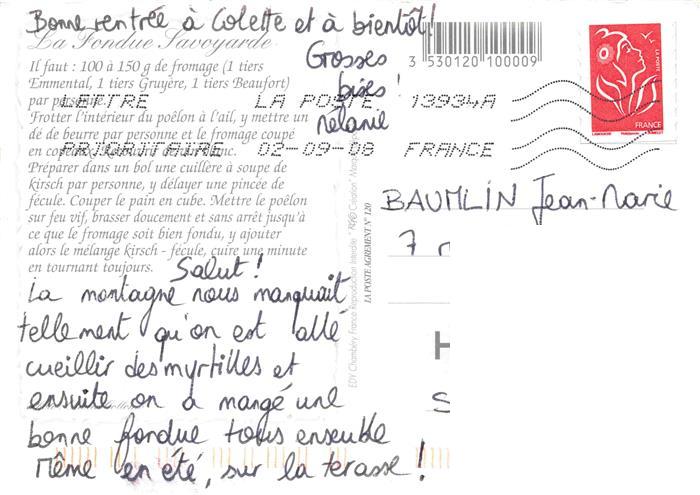 Bonne rentrée à Colette et à bientôt!
Grosses
bises!
Mélanie
La Fondue Savoyarde
Il faut : 100 à 150 g de fromage (1 tiers
Emmental, 1 tiers Gruyère, 1 tiers Beaufort)
par personne.
Frotter l'intérieur du poêlon à l'ail, y mettre un
dé de beurre par personne et le fromage coupé
en
Préparer dans un bol une cuillère à soupe de
kirsch par personne, y délayer une pincée de
fécule. Couper le pain en cube. Mettre le poêlon
sur feu vif, brasser doucement et sans arrêt jusqu'à
ce que le fromage soit bien fondu, y ajouter
alors le mélange kirsch - fécule, cuire une minute
en tournant toujours.
Salut!
La montagne nous manquait
tellement qu'on est allé
cueillir des myrtilles et
ensuite on a mangé une
bonne fondue tous ensemble
même en été, sur la terasse!
EDY Chambéry France Reproduction Interdite
LA POSTE AGREMENT N° 120
3 530120 100009
LETTRE LA POSTE 13934A
PRIORITAIRE 02-09-08 FRANCE
LA POSTE
FRANCE
BAUMLIN Jean-Marie
7 r
H
S